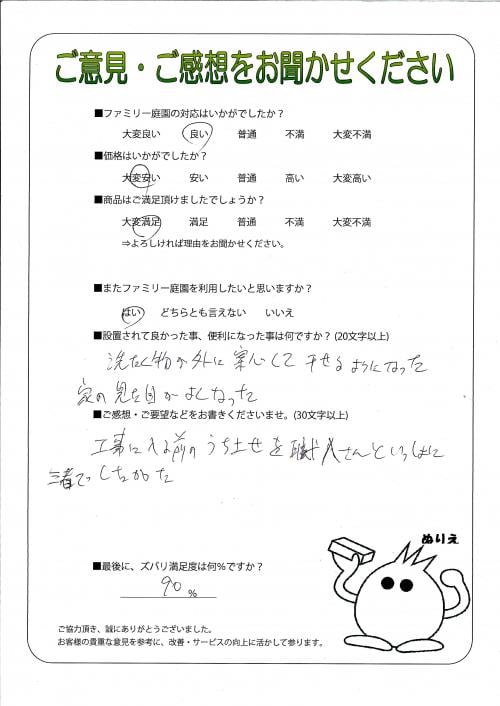 ご意見・ご感想をお聞かせください
■ファミリー庭園の対応はいかがでしたか？
大変良い 良い 普通 不満 大変不満
■価格はいかがでしたか？
大変安い 安い 普通 高い 大変高い
■商品はご満足頂けましたでしょうか？
大変満足 満足 普通 不満 大変不満
⇒よろしければ理由をお聞かせください。
■またファミリー庭園を利用したいと思いますか？
はい どちらとも言えない いいえ
■設置されて良かった事、便利になった事は何ですか？(20文字以上)
洗たく物が外に安心して干せるようになった
家の見た目がよくなった
■ご感想・ご要望などをお書きくださいませ。(30文字以上)
工事に入る前のうち合せを職人さんといっしょに
したかった
ぬりえ
■最後に、ズバリ満足度は何％ですか？
90％
ご協力頂き、誠にありがとうございました。
お客様の貴重な意見を参考に、改善・サービスの向上に活かして参ります。